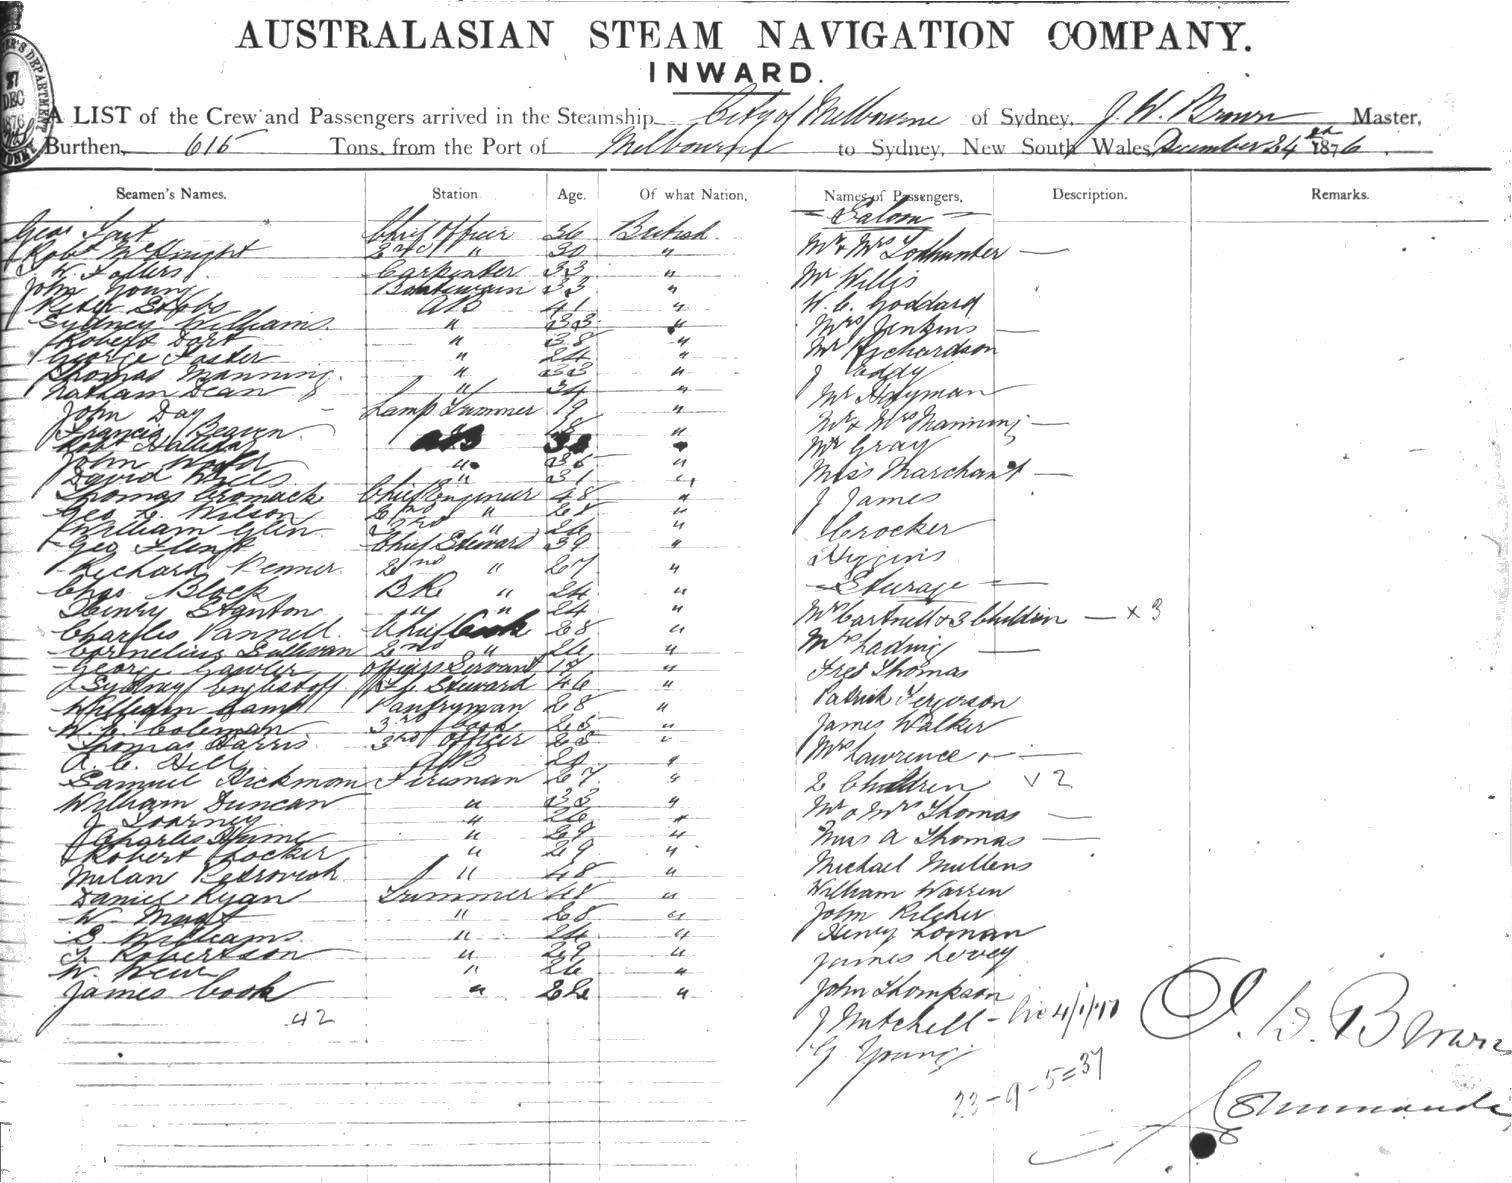 AUSTRALASIAN STEAM NAVIGATION COMPANY.
INWARD.
27
DEC
1876
A LIST of the Crew and Passengers arrived in the Steamship City of Melbourne of Sydney, J. W. Brown Master,
Burthen, 615 Tons, from the Port of Melbourne to Sydney, New South Wales, December 24 1876
Seamen's Names. Station Age. Of what Nation, Names of Passengers, Description. Remarks.
Saloon
Chief Officer 36 British
Robt McKnight 2nd " 30 "
Carpenter 33 "
John Young Boatswain 33 "
Peter AB 41 "
Sydney Williams " 33 "
Robert Dort " 38 "
George Foster " 24 "
Thomas Manning " 33 "
Nathan Dean " 34 "
John Day Lamp Trimmer 19 "
Francis Beaven "
AB "
John " 36 "
David " 31 "
Thomas Cromack Chief Engineer 48 "
Geo Wilson 2nd " 28 "
William Glen 3rd " 26 "
Geo Chief Steward 39 "
Richard Penner 2nd " 27 "
Chas Block " 24 "
Henry Stanton " " 24 "
Charles Pannell Chief Cook 28 "
Cornelius Sullivan 2nd " 26 "
George Lawler Officers Servant 17 "
Sydney Steward 46 "
William Camp Pantryman 28 "
W. C. Coleman 3rd Cook 25 "
Thomas Harris 3rd Officer 25 "
A. C. Hill AB 28 "
Samuel Hickmon Fireman 27 "
William Duncan " 33 "
J " 26 "
Charles Hume " 29 "
Robert Locker " 29 "
Milan Petrovich " 48 "
Daniel Ryan Trimmer 48 "
W. " 28 "
S Williams " 24 "
Robertson " 29 "
W. Weir " 26 "
James Cook " 22 "
42
Mr & Mrs Todhunter
Mr Willis
W. C. Goddard
Mrs Jenkins
Mr Richardson
J Eddy
Mr Hayman
Mr & Mrs Manning
Mr Gray
Miss Marchant
J James
Crocker
Higgins
Steerage
Mrs Cartnell & 3 Children x 3
Mrs Lading
Fred Thomas
Patrick Fergerson
James Walker
Mrs Lawrence &
2 Children v 2
Mr & Mrs Thomas
Miss A Thomas
Michael Mullens
William Warren
John Pilcher
Henry Loman
James Lovey
John Thompson
J Mitchell
G Young
23-9-5=37
J. W. Brown
Commander